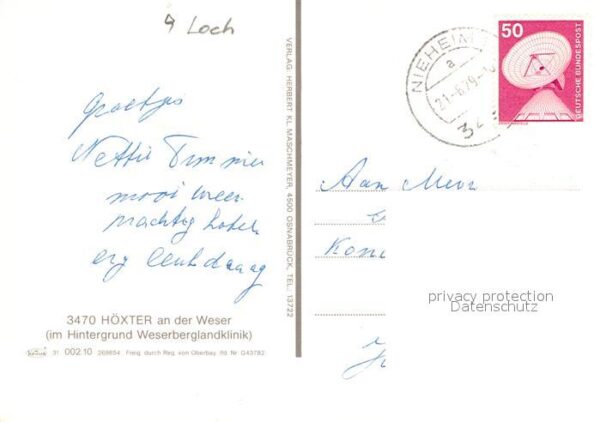 9 Loch
Groetjes
Nettie Timmer
mooi weer
prachtig hotel
erg
3470 HÖXTER an der Weser
(im Hintergrund Weserberglandklinik)
31 002 10 268654 Freig. durch Reg. von Oberbay. Nr. G43782
VERLAG HERBERT KL. MASCHMEYER, 4500 OSNABRÜCK, TEL. 13722
NIEHEIM
a
21.-6.79
50
DEUTSCHE BUNDESPOST
Aan Mevr
privacy protection
Datenschutz